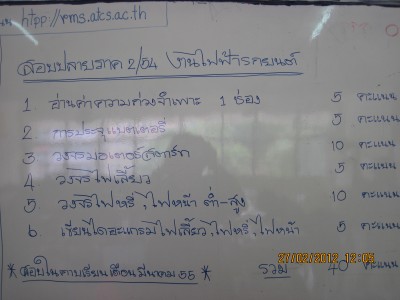 http://rms.atcs.ac.th
สอบปลายภาค 2/54 งานไฟฟ้ารถยนต์
1 อ่านค่าความถ่วงจำเพาะ 1 ช่อง 5 คะแนน
2 การประจุแบตเตอรี่ 5 คะแนน
3 วงจรมอเตอร์สตาร์ท 10 คะแนน
4 วงจรไฟเลี้ยว 5 คะแนน
5 วงจรไฟหรี่, ไฟหน้า ต่ำ-สูง 10 คะแนน
6. เขียนไดอะแกรมไฟเลี้ยว, ไฟหรี่, ไฟหน้า 5 คะแนน
* สอบในคาบเรียนเดือนมีนาคม 55 * รวม 40 คะแนน
27/02/2012 12:05